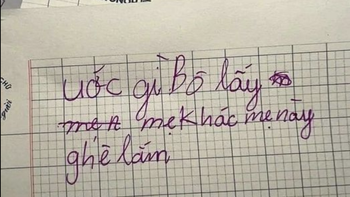 ước gì Bố lấy
mẹ khác mẹ này
ghê lắm